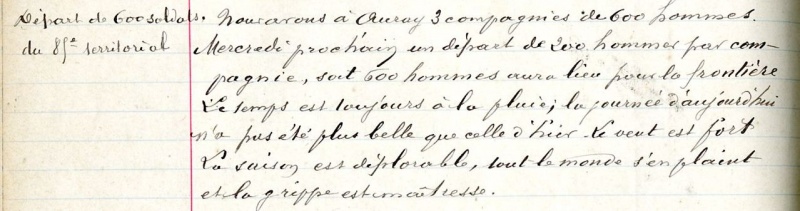 Départ de 600 soldats.
du 85e territorial
Nous avons à Auray 3 compagnies de 600 hommes.
Mercredi prochain un départ de 200 hommes par com-
pagnie, soit 600 hommes aura lieu pour la frontière
Le temps est toujours à la pluie; la journée d'aujourd'hui
n'a pas été plus belle que celle d'hier. Le vent est fort
La saison est déplorable, tout le monde s'en plaint
et la grippe est maîtresse.